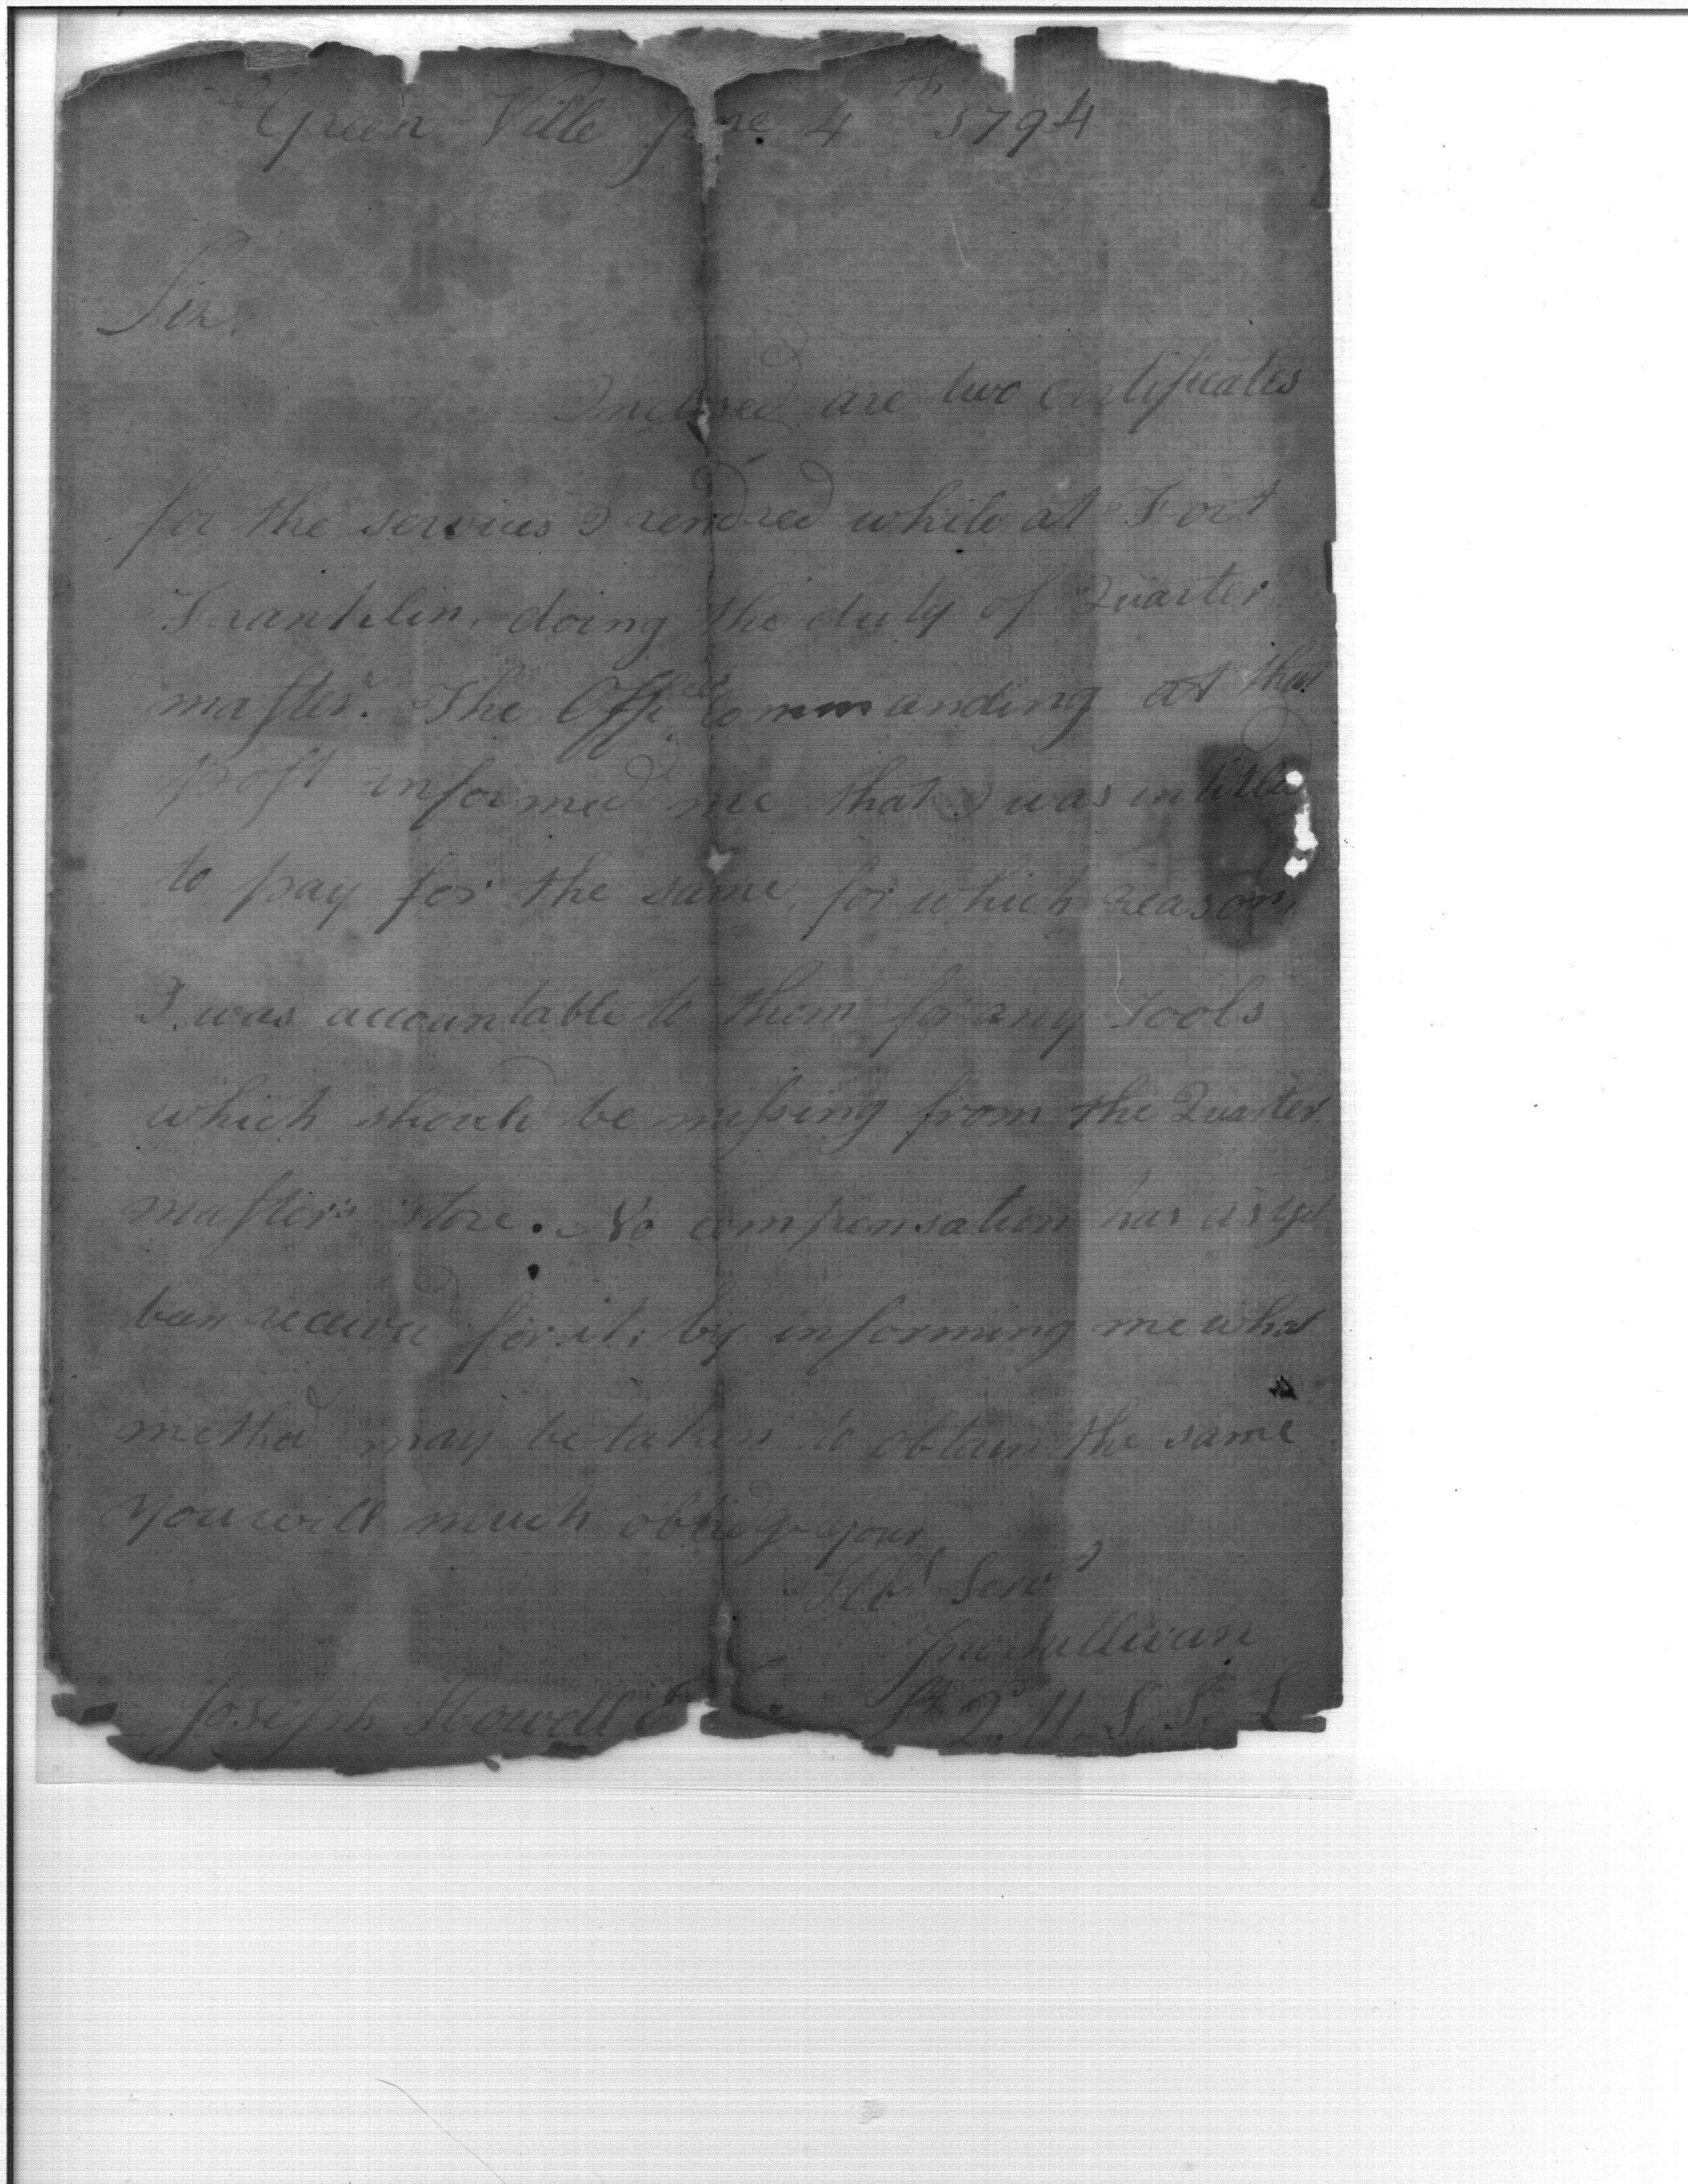 Green Ville June 4th 1794
Sir.
Inclosed are two certificates
for the services I rendred while at Fort
Franklin, doing the duty of Quarter
master. The Officer commanding at that
post informed me that I was intitled
to pay for the same, for which reason,
I was accountable to them for any tools
which should be missing from the Quarter
masters store. No compensation has as yet
been received for it; by informing me what
method may be taken to obtain the same
you will much obliege your
Hbl Servt
Jno Sullivan
Joseph Howell E Lt 2d U. S. S. L